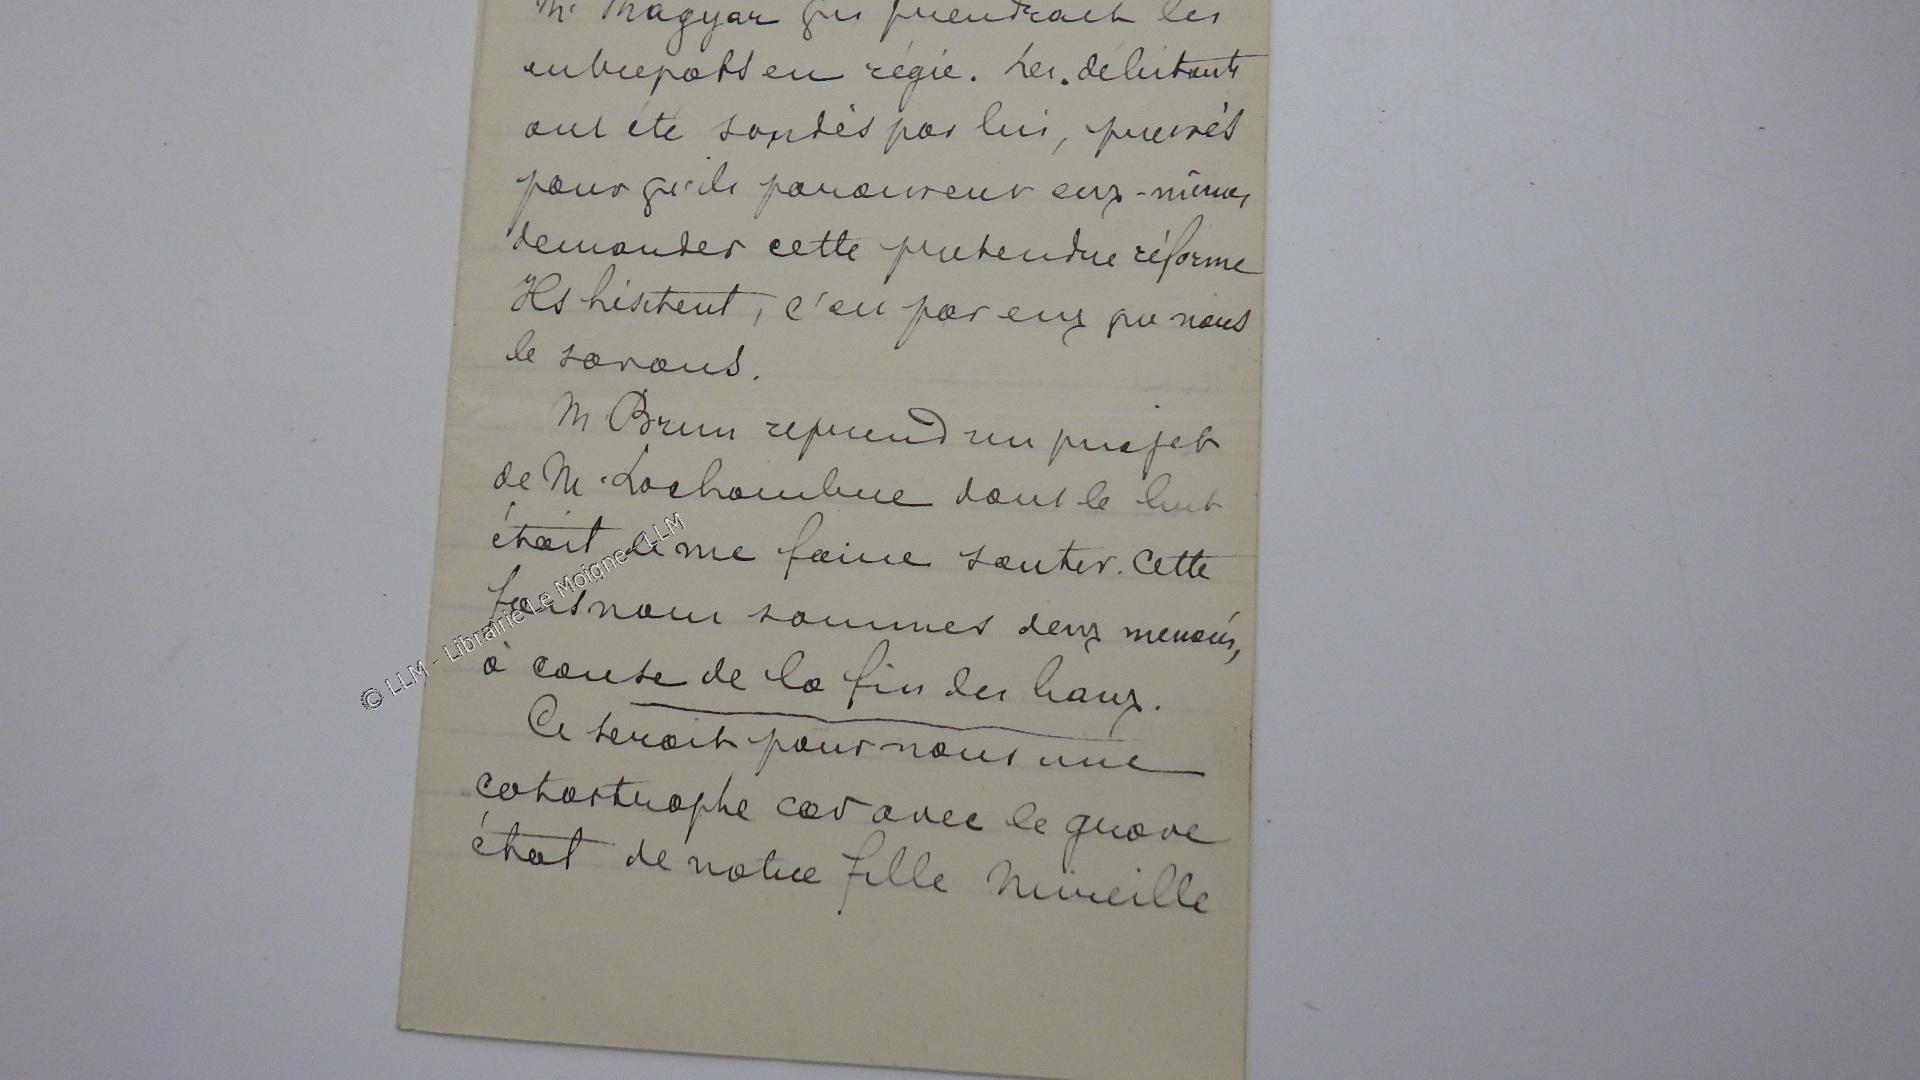 Mr Magyar qui prendrait les
entrepots en régie. Les débitants
ont été sondés par lui, priés
pour qu'ils eux-mêmes
demander cette pretendue réforme
Ils hésitent, c'est par eux que nous
le savons.
M Brun reprend un projet
de M. Lachambre dont le but
était de me faire sauter. Cette
fois nous sommes deux menacés,
à cause de la fin des baux.
Ce serait pour nous une
catastrophe car avec le grave
état de notre fille Mireille
© LLM - Librairie Le Moigne - LLM